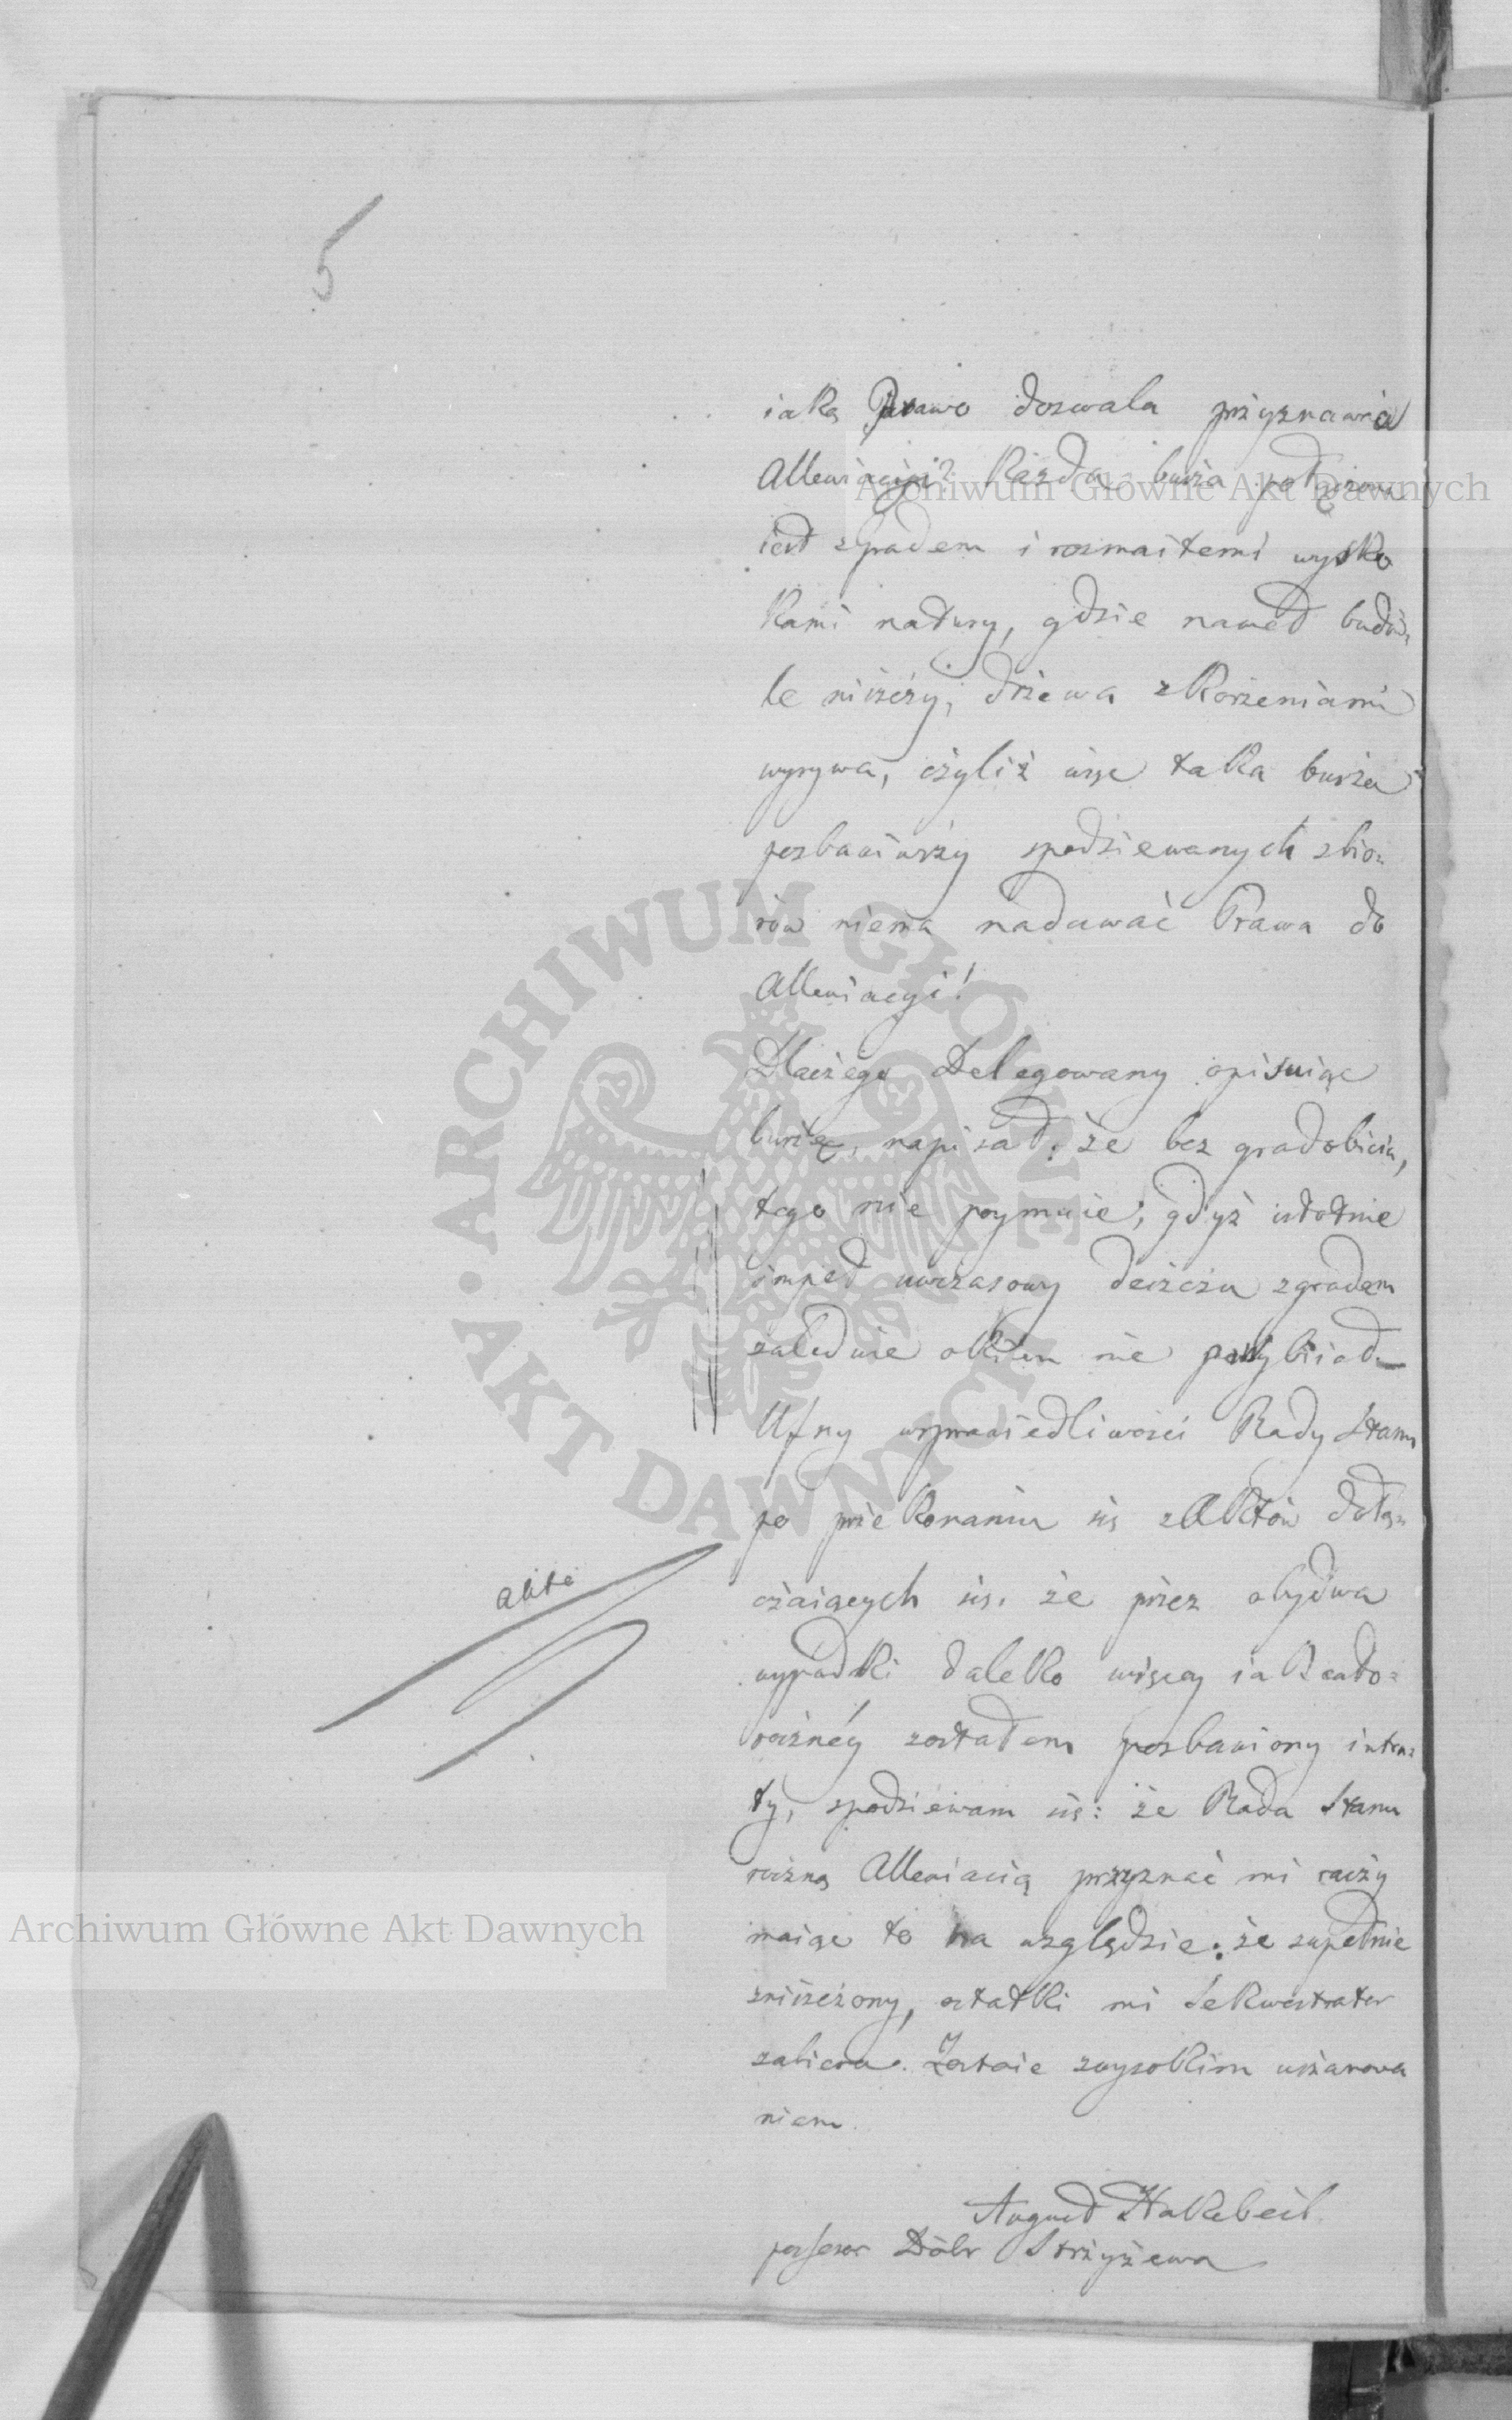 5
iaką Prawo dozwala przyznawia
Allewiacyi? Każda burża połączona
iest zgradem i rozmaitemi wysko
kami natury, gdzie nawet budo-
le niszczy, drzewa zkorzeniami
wyrywa, czyliż więc taka burża
pozbawiwszy spodziewanych zbio-
rów niema nadawać Prawa do
Allewiacyi!
Dlaczego Delegowany opisuiąc
burżę, napisał: że bez gradobicia,
tego nie poymuie, gdyż istotnie
impet uwczasowy deszczu zgradem
zaledwie okien nie powybiiał
Ufny wsprawiedliwości Rady Stanu
po przekonaniu się zAktów dołą-
czaiących się, że przez obydwa
wypadki daleko więcey iak cało-
rocznéy zostałem pozbawiony intra-
ty, spodziewam się: że Rada Stanu
roczną Allewiacią przyznać mi raczy
maiąc to na względzie: że zupełnie
zniszczony, ostatki mi Sekwestrator
zabiera. Zostaie zwysokim uszanowa
niem
August Hakebeil
possesor Dóbr Strzyżewa
akta
Archiwum Główne Akt Dawnych
Archiwum Główne Akt Dawnych
ARCHIWUM GŁÓWNE AKT DAWNYCH